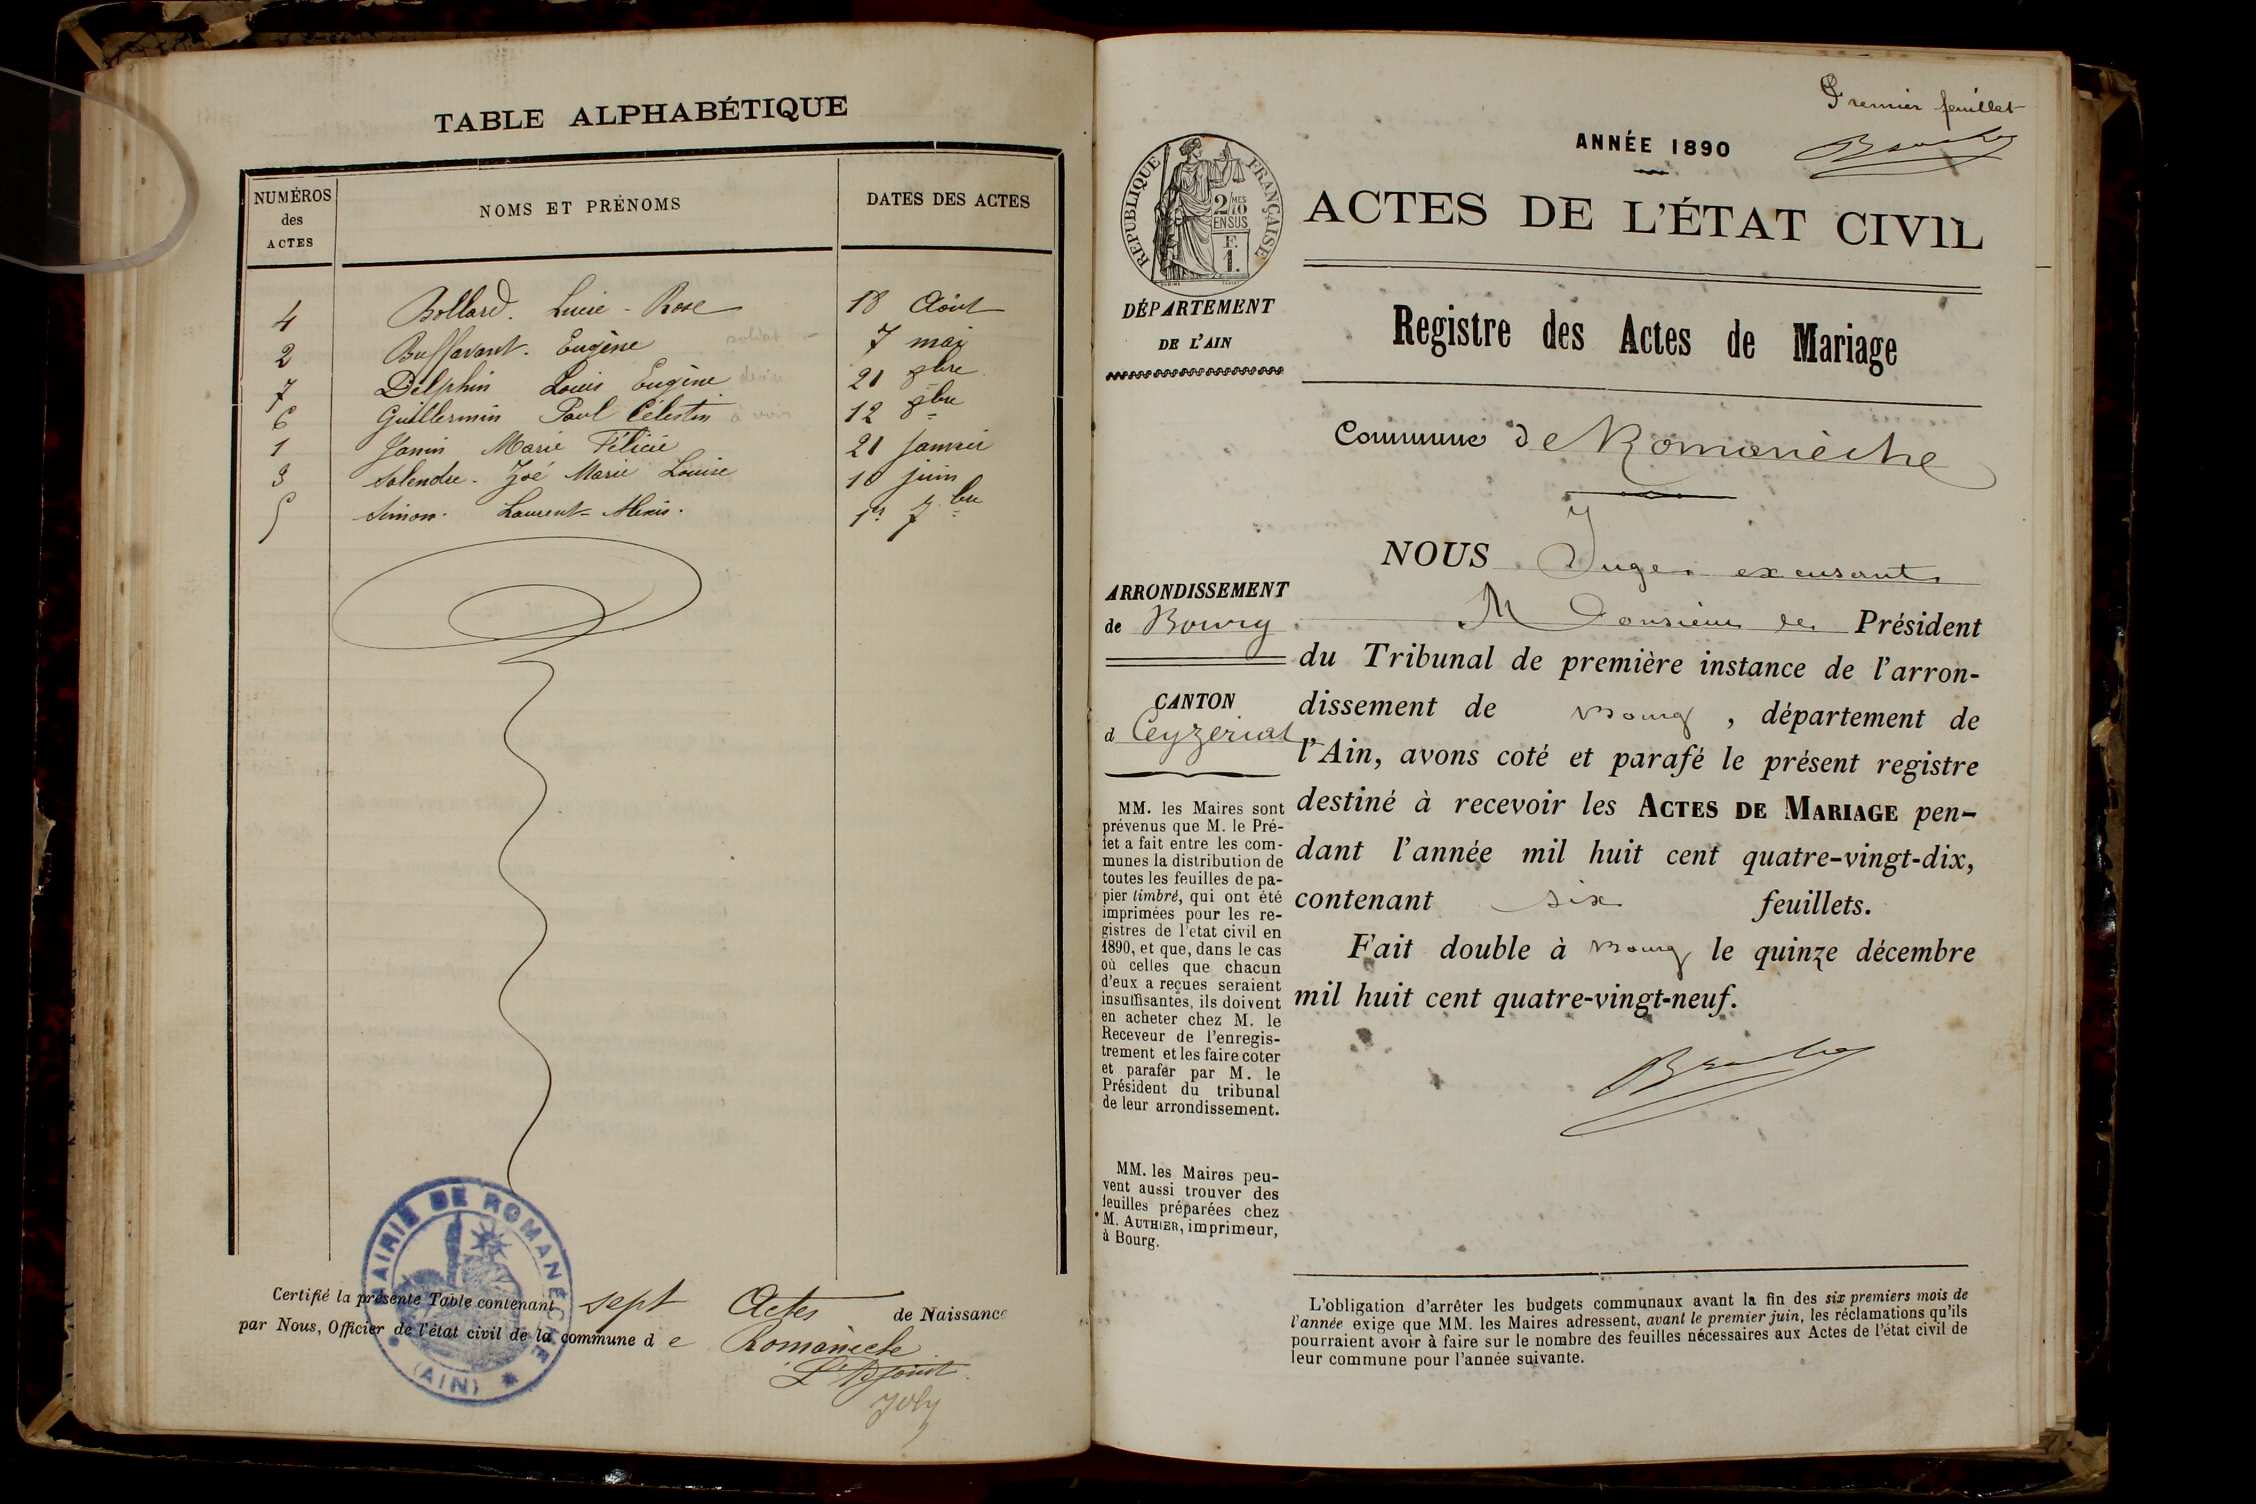 TABLE ALPHABÉTIQUE
NUMÉROS des ACTES
NOMS ET PRÉNOMS
DATES DES ACTES
4 Bollard. Lucie - Rose 18 Août
2 Buffavant. Eugène 7 mai
7 Delphin Louis Eugène 21 9bre
6 Guillermin Paul Célestin 12 9bre
1 Janin Marie Félicie 21 Janvier
3 Salendre. Zoé Marie Louise 10 juin
5 Simon. Laurent-Alexis. 1er 7bre
MAIRIE DE ROMANÈCHE
(AIN)
Certifié la présente Table contenant sept Actes de Naissance
par Nous, Officier de l'état civil de la commune de Romanèche
L'Adjoint
Joly
Premier feuillet
ANNÉE 1890
RÉPUBLIQUE FRANÇAISE
2/10 MES
EN SUS
F.
1.
ACTES DE L'ÉTAT CIVIL
DÉPARTEMENT
DE L'AIN
Registre des Actes de Mariage
Commune de Romanèche
ARRONDISSEMENT
de Bourg
CANTON
d Ceyzeriat
MM. les Maires sont
prévenus que M. le Pré-
fet a fait entre les com-
munes la distribution de
toutes les feuilles de pa-
pier timbré, qui ont été
imprimées pour les re-
gistres de l'etat civil en
1890, et que, dans le cas
où celles que chacun
d'eux a reçues seraient
insuffisantes, ils doivent
en acheter chez M. le
Receveur de l'enregis-
trement et les faire coter
et parafer par M. le
Président du tribunal
de leur arrondissement.
MM. les Maires peu-
vent aussi trouver des
feuilles préparées chez
M. AUTHIER, imprimeur,
à Bourg.
NOUS Juge excusant
Monsieur le Président
du Tribunal de première instance de l'arron-
dissement de Bourg, département de
l'Ain, avons coté et parafé le présent registre
destiné à recevoir les ACTES DE MARIAGE pen-
dant l'année mil huit cent quatre-vingt-dix,
contenant six feuillets.
Fait double à Bourg le quinze décembre
mil huit cent quatre-vingt-neuf.
L'obligation d'arrêter les budgets communaux avant la fin des six premiers mois de
l'année exige que MM. les Maires adressent, avant le premier juin, les réclamations qu'ils
pourraient avoir à faire sur le nombre des feuilles nécessaires aux Actes de l'état civil de
leur commune pour l'année suivante.